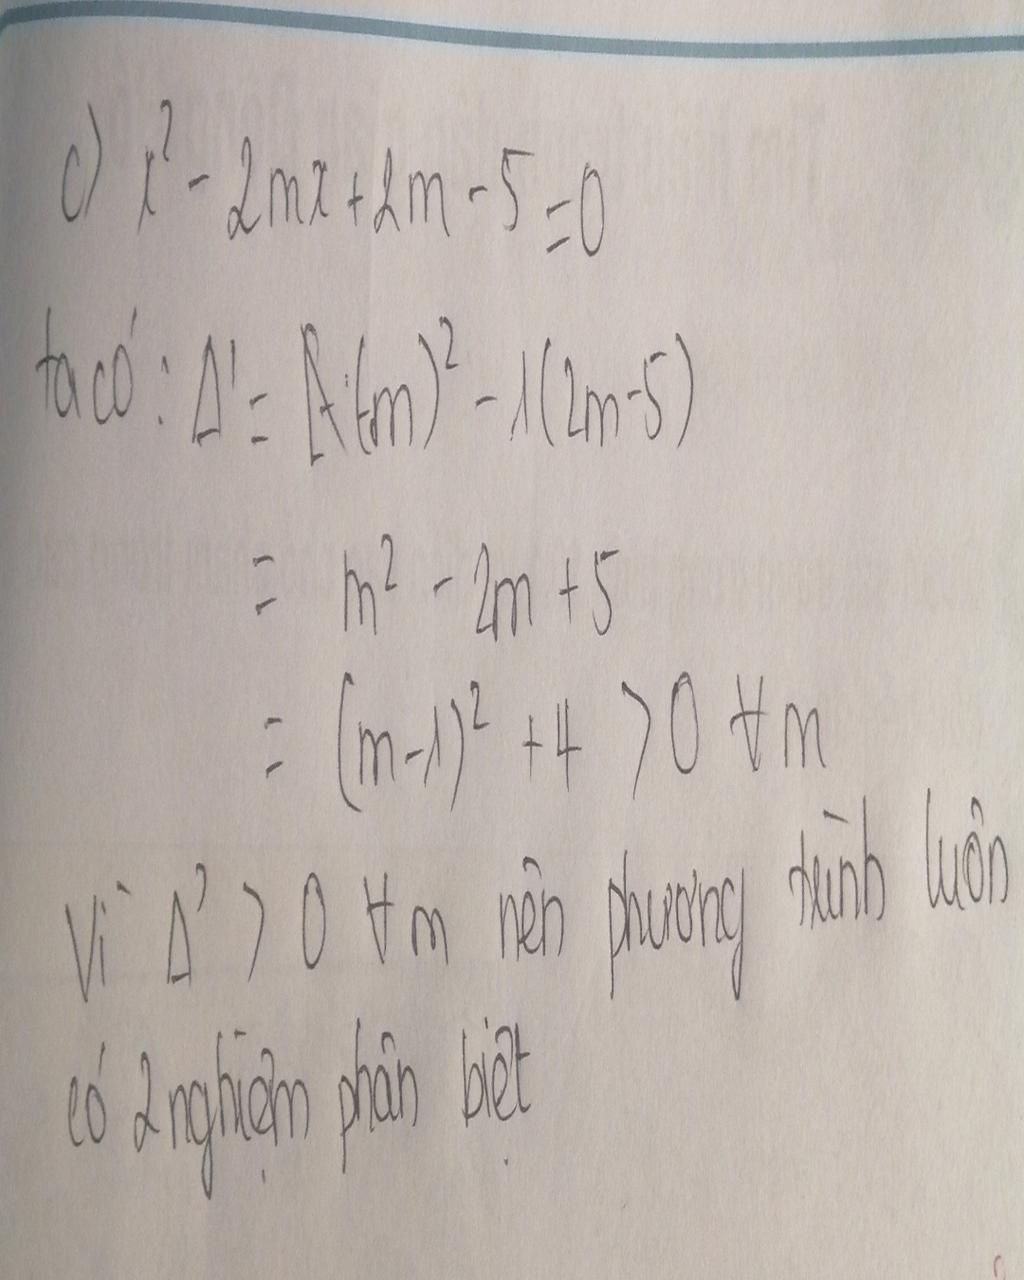 c) x² - 2mx + 2m - 5 = 0
ta có: Δ' = (-m)² - 1(2m-5)
= m² - 2m + 5
= (m-1)² + 4 > 0 ∀m
Vì Δ' > 0 ∀m nên phương trình luôn
có 2 nghiệm phân biệt